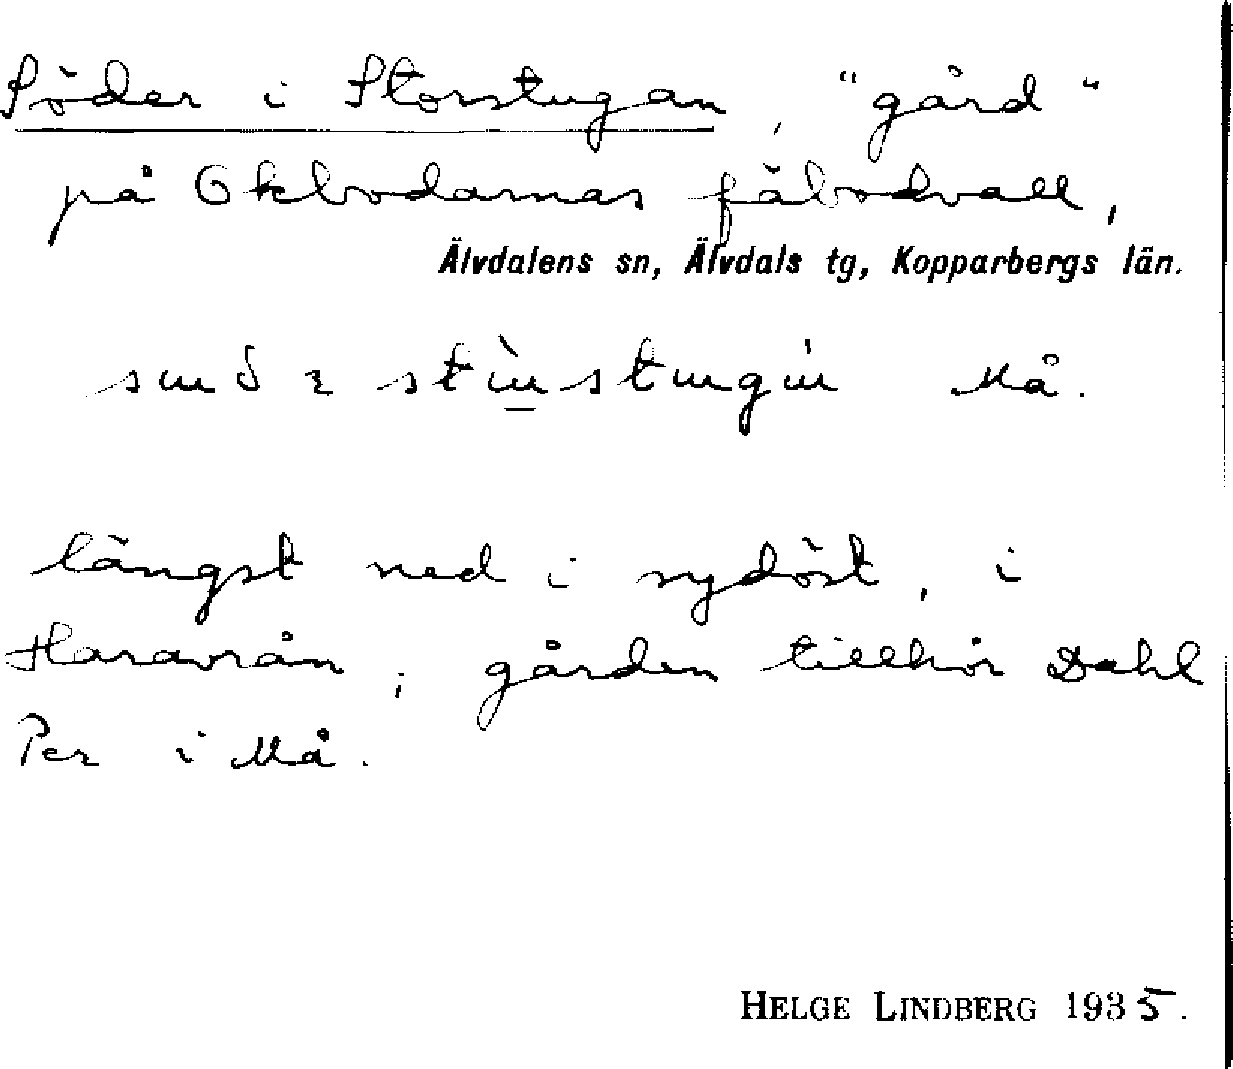 Söder i Storstugan, "gård"
på Oklbodarnas fäbodvall,
Älvdalens sn, Älvdals tg, Kopparbergs län.
Må.
längst ned i sydöst, i
; gården tillhör Dahl
Per i Må.
HELGE LINDBERG 1935.